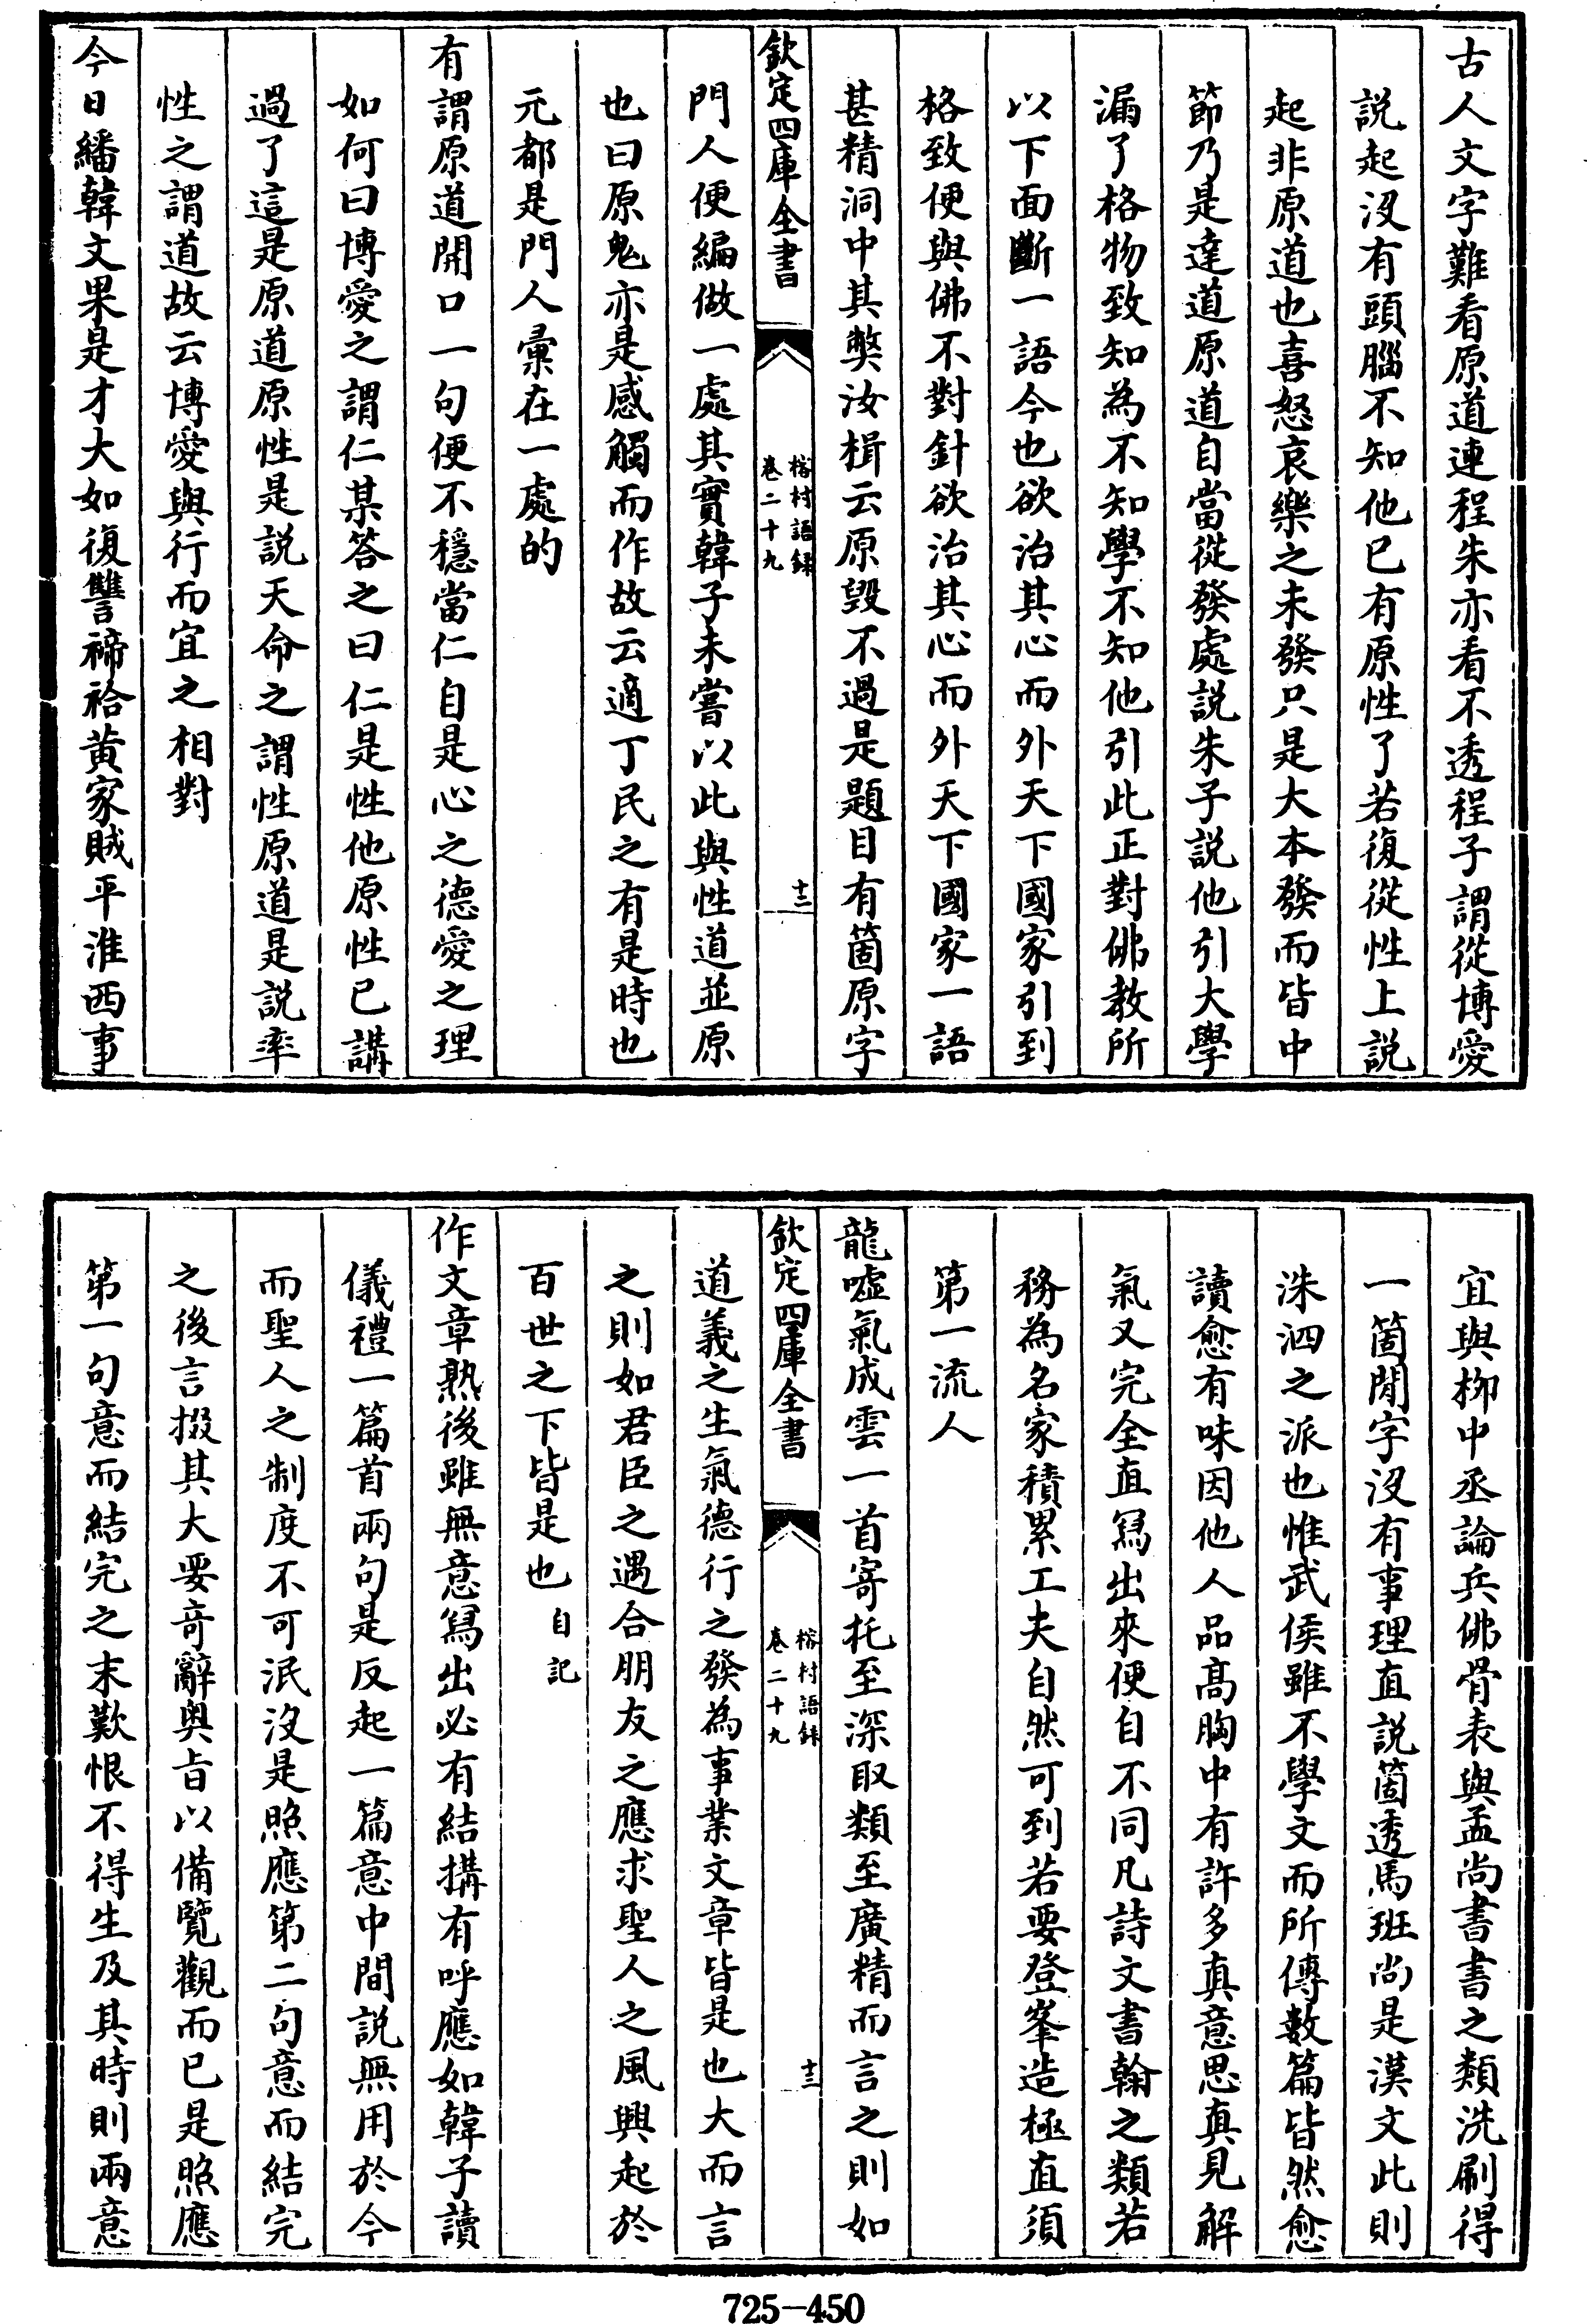 古人文字難看原道連程朱亦看不透程子謂從博愛
說起沒有頭腦不知他已有原性了若復從性上說
起非原道也喜怒哀樂之未發只是大本發而皆中
節乃是達道原道自當從發處說朱子說他引大學
漏了格物致知為不知學不知他引此正對佛教所
以下面斷一語今也欲治其心而外天下國家引到
格致便與佛不對針欲治其心而外天下國家一語
甚精洞中其弊汝楫云原毀不過是題目有箇原字
欽定四庫全書
榕村語録
卷二十九
十二
門人便編做一處其實韓子未嘗以此與性道並原
也曰原鬼亦是感觸而作故云適丁民之有是時也
元都是門人彙在一處的
有謂原道開口一句便不穩當仁自是心之德愛之理
如何曰博愛之謂仁某答之曰仁是性他原性已講
過了這是原道原性是說天命之謂性原道是說率
性之謂道故云博愛與行而宜之相對
今日繙韓文果是才大如復讐禘祫黄家賊平淮西事
宜與栁中丞論兵佛骨表與孟尚書書之類洗刷得
一箇閒字沒有事理直說箇透馬班尚是漢文此則
洙泗之派也惟武侯雖不學文而所傳數篇皆然愈
讀愈有味因他人品髙胸中有許多真意思真見解
氣又完全直寫出來便自不同凡詩文書翰之類若
務為名家積累工夫自然可到若要登峯造極直須
第一流人
龍噓氣成雲一首寄托至深取類至廣精而言之則如
欽定四庫全書
榕村語録
卷二十九
十三
道義之生氣德行之發為事業文章皆是也大而言
之則如君臣之遇合朋友之應求聖人之風興起於
百世之下皆是也自記
作文章熟後雖無意寫出必有結搆有呼應如韓子讀
儀禮一篇首兩句是反起一篇意中間說無用於今
而聖人之制度不可泯沒是照應第二句意而結完
之後言掇其大要竒辭奥旨以備覽觀而已是照應
第一句意而結完之末歎恨不得生及其時則兩意
725-450